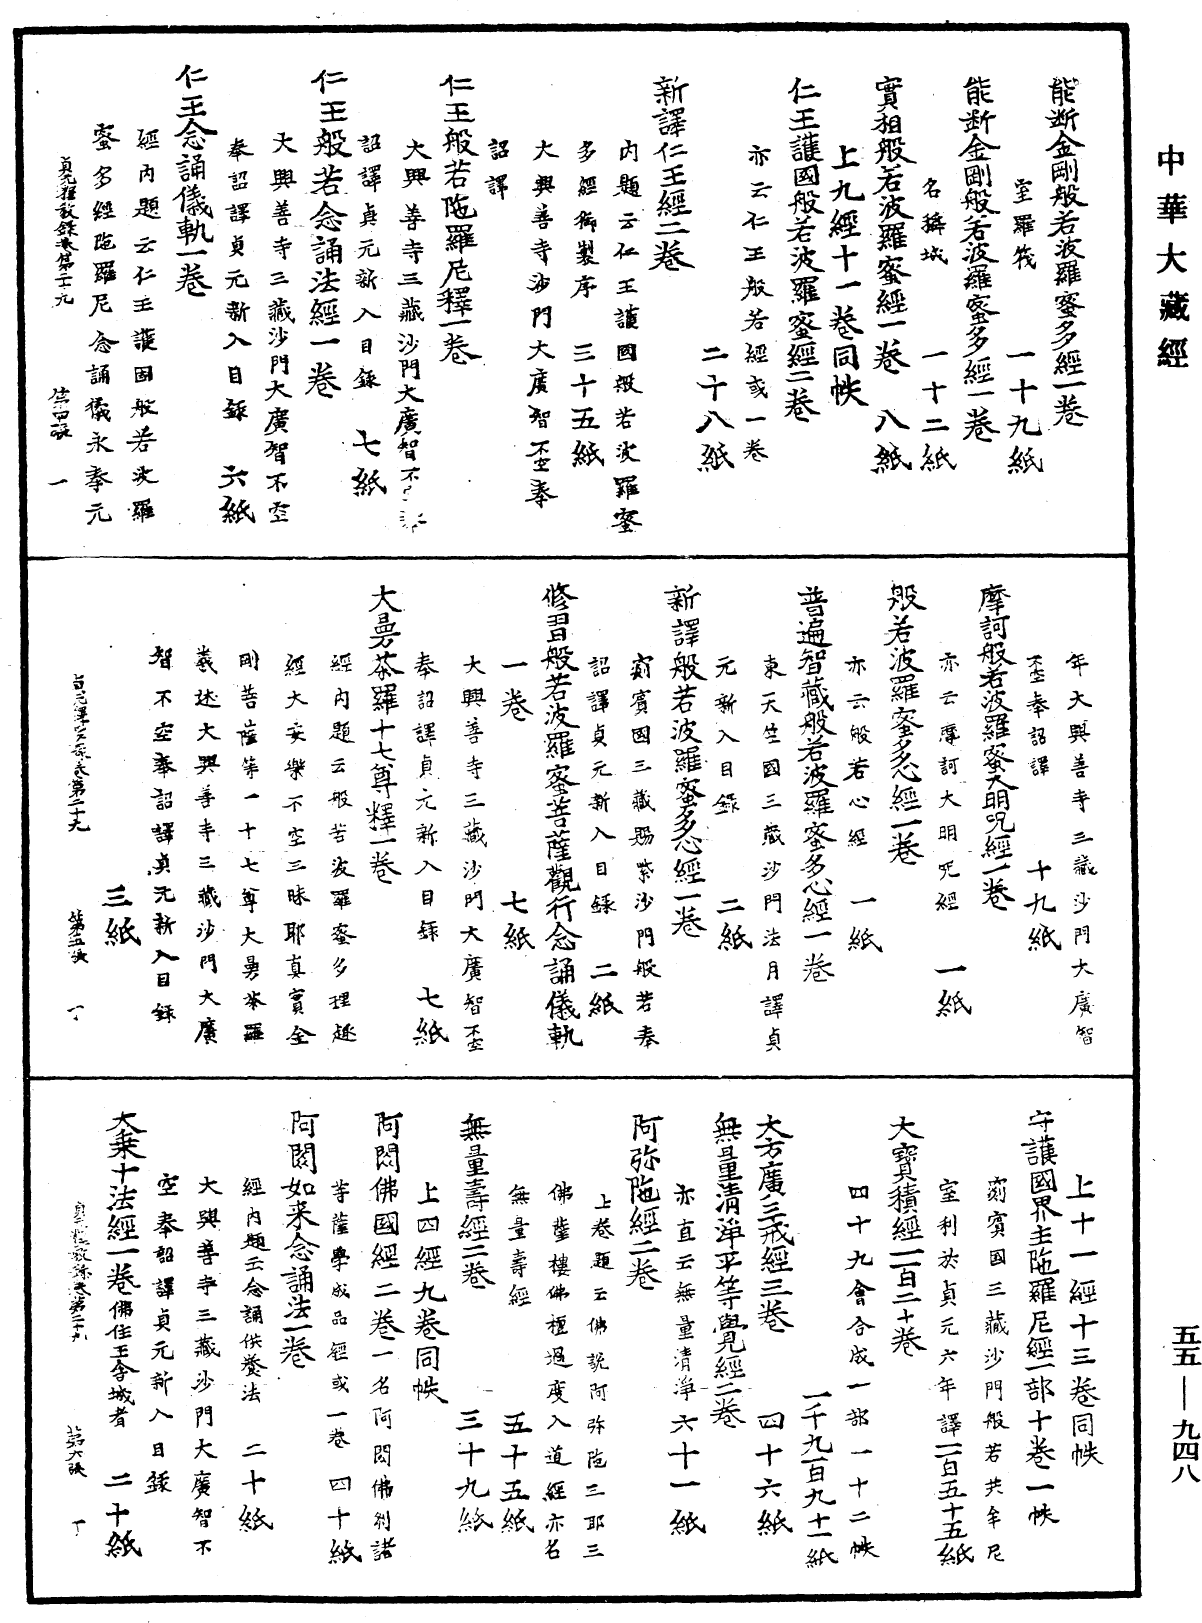 中華大藏經
能断金剛般若波羅蜜多經一卷
室羅筏　一十九紙
能断金剛般若波羅蜜多經一卷
名稱城　一十二紙
實相般若波羅蜜經一卷　八紙
上九經十一卷同帙
仁王護國般若波羅蜜經二卷
亦云仁王般若經或一卷
二十八紙
新譯仁王經二卷
内題云仁王護國般若波羅蜜
多經御製序　三十五紙
大興善寺沙門大廣智不空奉
詔譯
仁王般若陁羅尼釋一卷
大興善寺三藏沙門大廣智不空
詔譯貞元新入目録　七紙
仁王般若念誦法經一卷
大興善寺三藏沙門大廣智不空
奉詔譯貞元新入目録　六紙
仁王念誦儀軌一卷
經内題云仁王護國般若波羅
蜜多經陁羅尼念誦儀永奉元
年大興善寺三藏沙門大廣智
不空奉詔譯　十九紙
摩訶般若波羅蜜大明咒經一卷
亦云摩訶大明咒經　一紙
般若波羅蜜多心經一卷
亦云般若心經　一紙
普遍智藏般若波羅蜜多心經一卷
東天竺國三藏沙門法月譯貞
元新入目録　二紙
新譯般若波羅蜜多心經一卷
罽賓國三藏賜紫沙門般若奉
詔譯貞元新入目録　二紙
修習般若波羅蜜菩薩觀行念誦儀軌
一卷　七紙
大興善寺三藏沙門大廣智不空
奉詔譯貞元新入目録　七紙
大曼荼羅十七尊釋一卷
經内題云般若波羅蜜多理趣
經大安樂不空三昧耶真實金
剛菩薩等一十七尊大曼荼羅
義述大興善寺三藏沙門大廣
智不空奉詔譯貞元新入目録
三紙
貞元釋教録卷第二十九　第五張
上十一經十三卷同帙
守護國界主陁羅尼經一部十卷一帙
罽賓國三藏沙門般若共牟尼
室利於貞元六年譯一百五十五紙
大寶積經一百二十卷
四十九會合成一部一十二帙
一千九百九十一紙
大方廣三戒經三卷　四十六紙
無量清淨平等覺經二卷
亦直云無量清淨　六十一紙
阿弥陁經二卷
上卷題云佛説阿弥陁三耶三
佛薩樓佛檀過度入道經亦名
無量壽經　五十五紙
無量壽經二卷　三十九紙
上四經九卷同帙
阿閦佛國經二卷一名阿閦佛刹諸
菩薩學成品經或一卷　四十紙
阿閦如來念誦法一卷
經内題云念誦供養法　二十紙
大興善寺三藏沙門大廣智不
空奉詔譯貞元新入目録
大乗十法經一卷佛住王舍城者　二十紙
第六張
五五—九四八